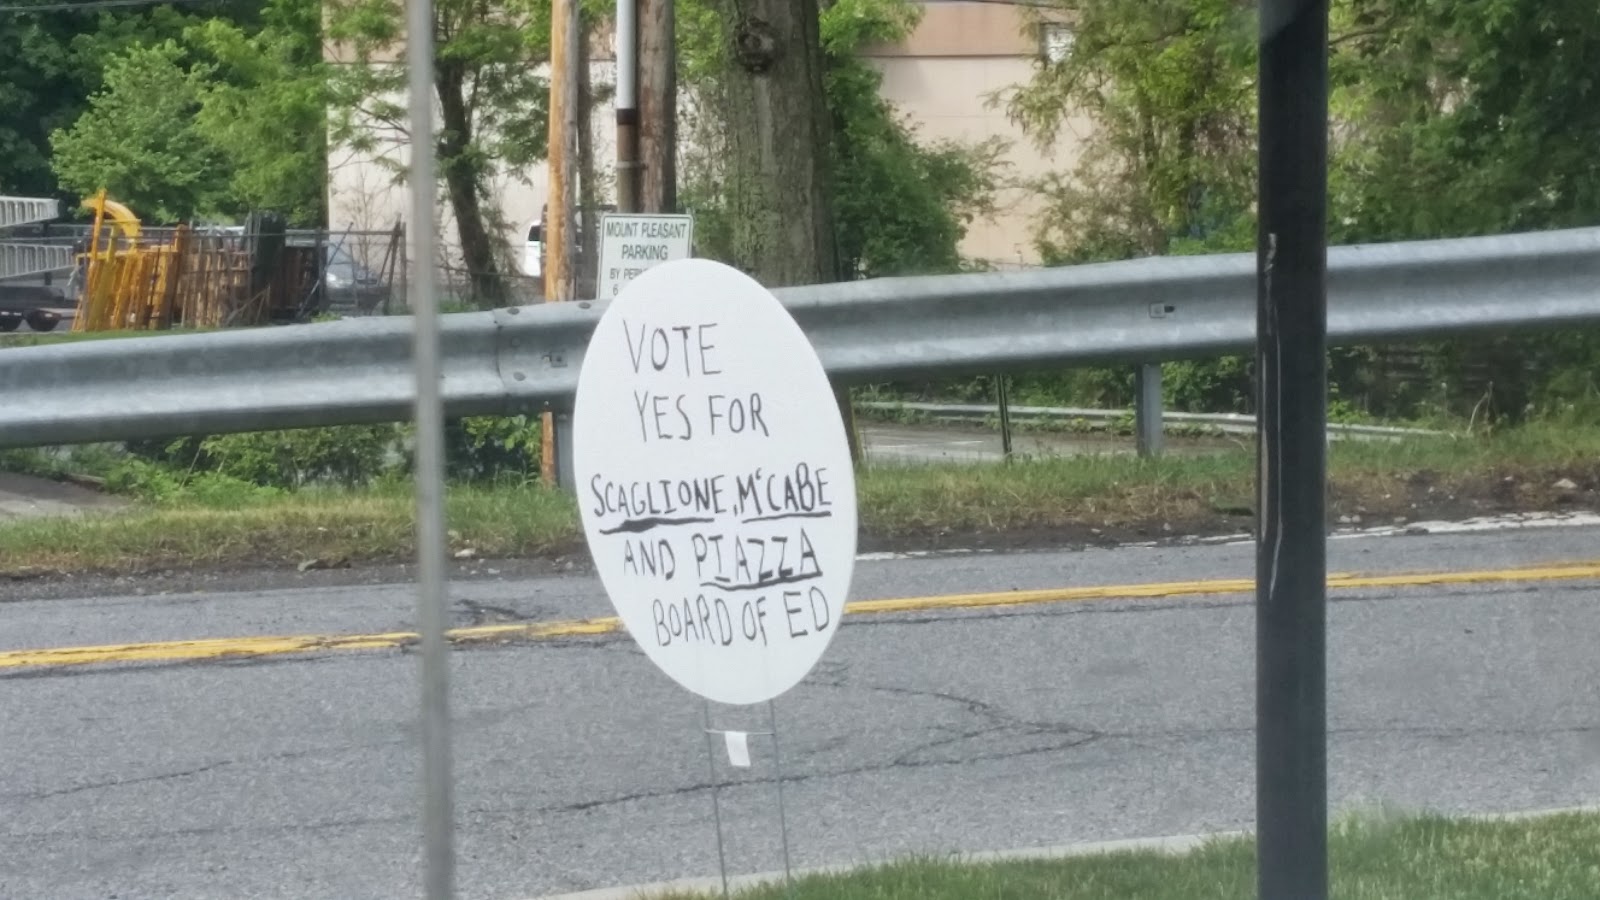 MOUNT PLEASANT
PARKING
VOTE
YES FOR
SCAGLIONE, McCABE
AND PIAZZA
BOARD OF ED